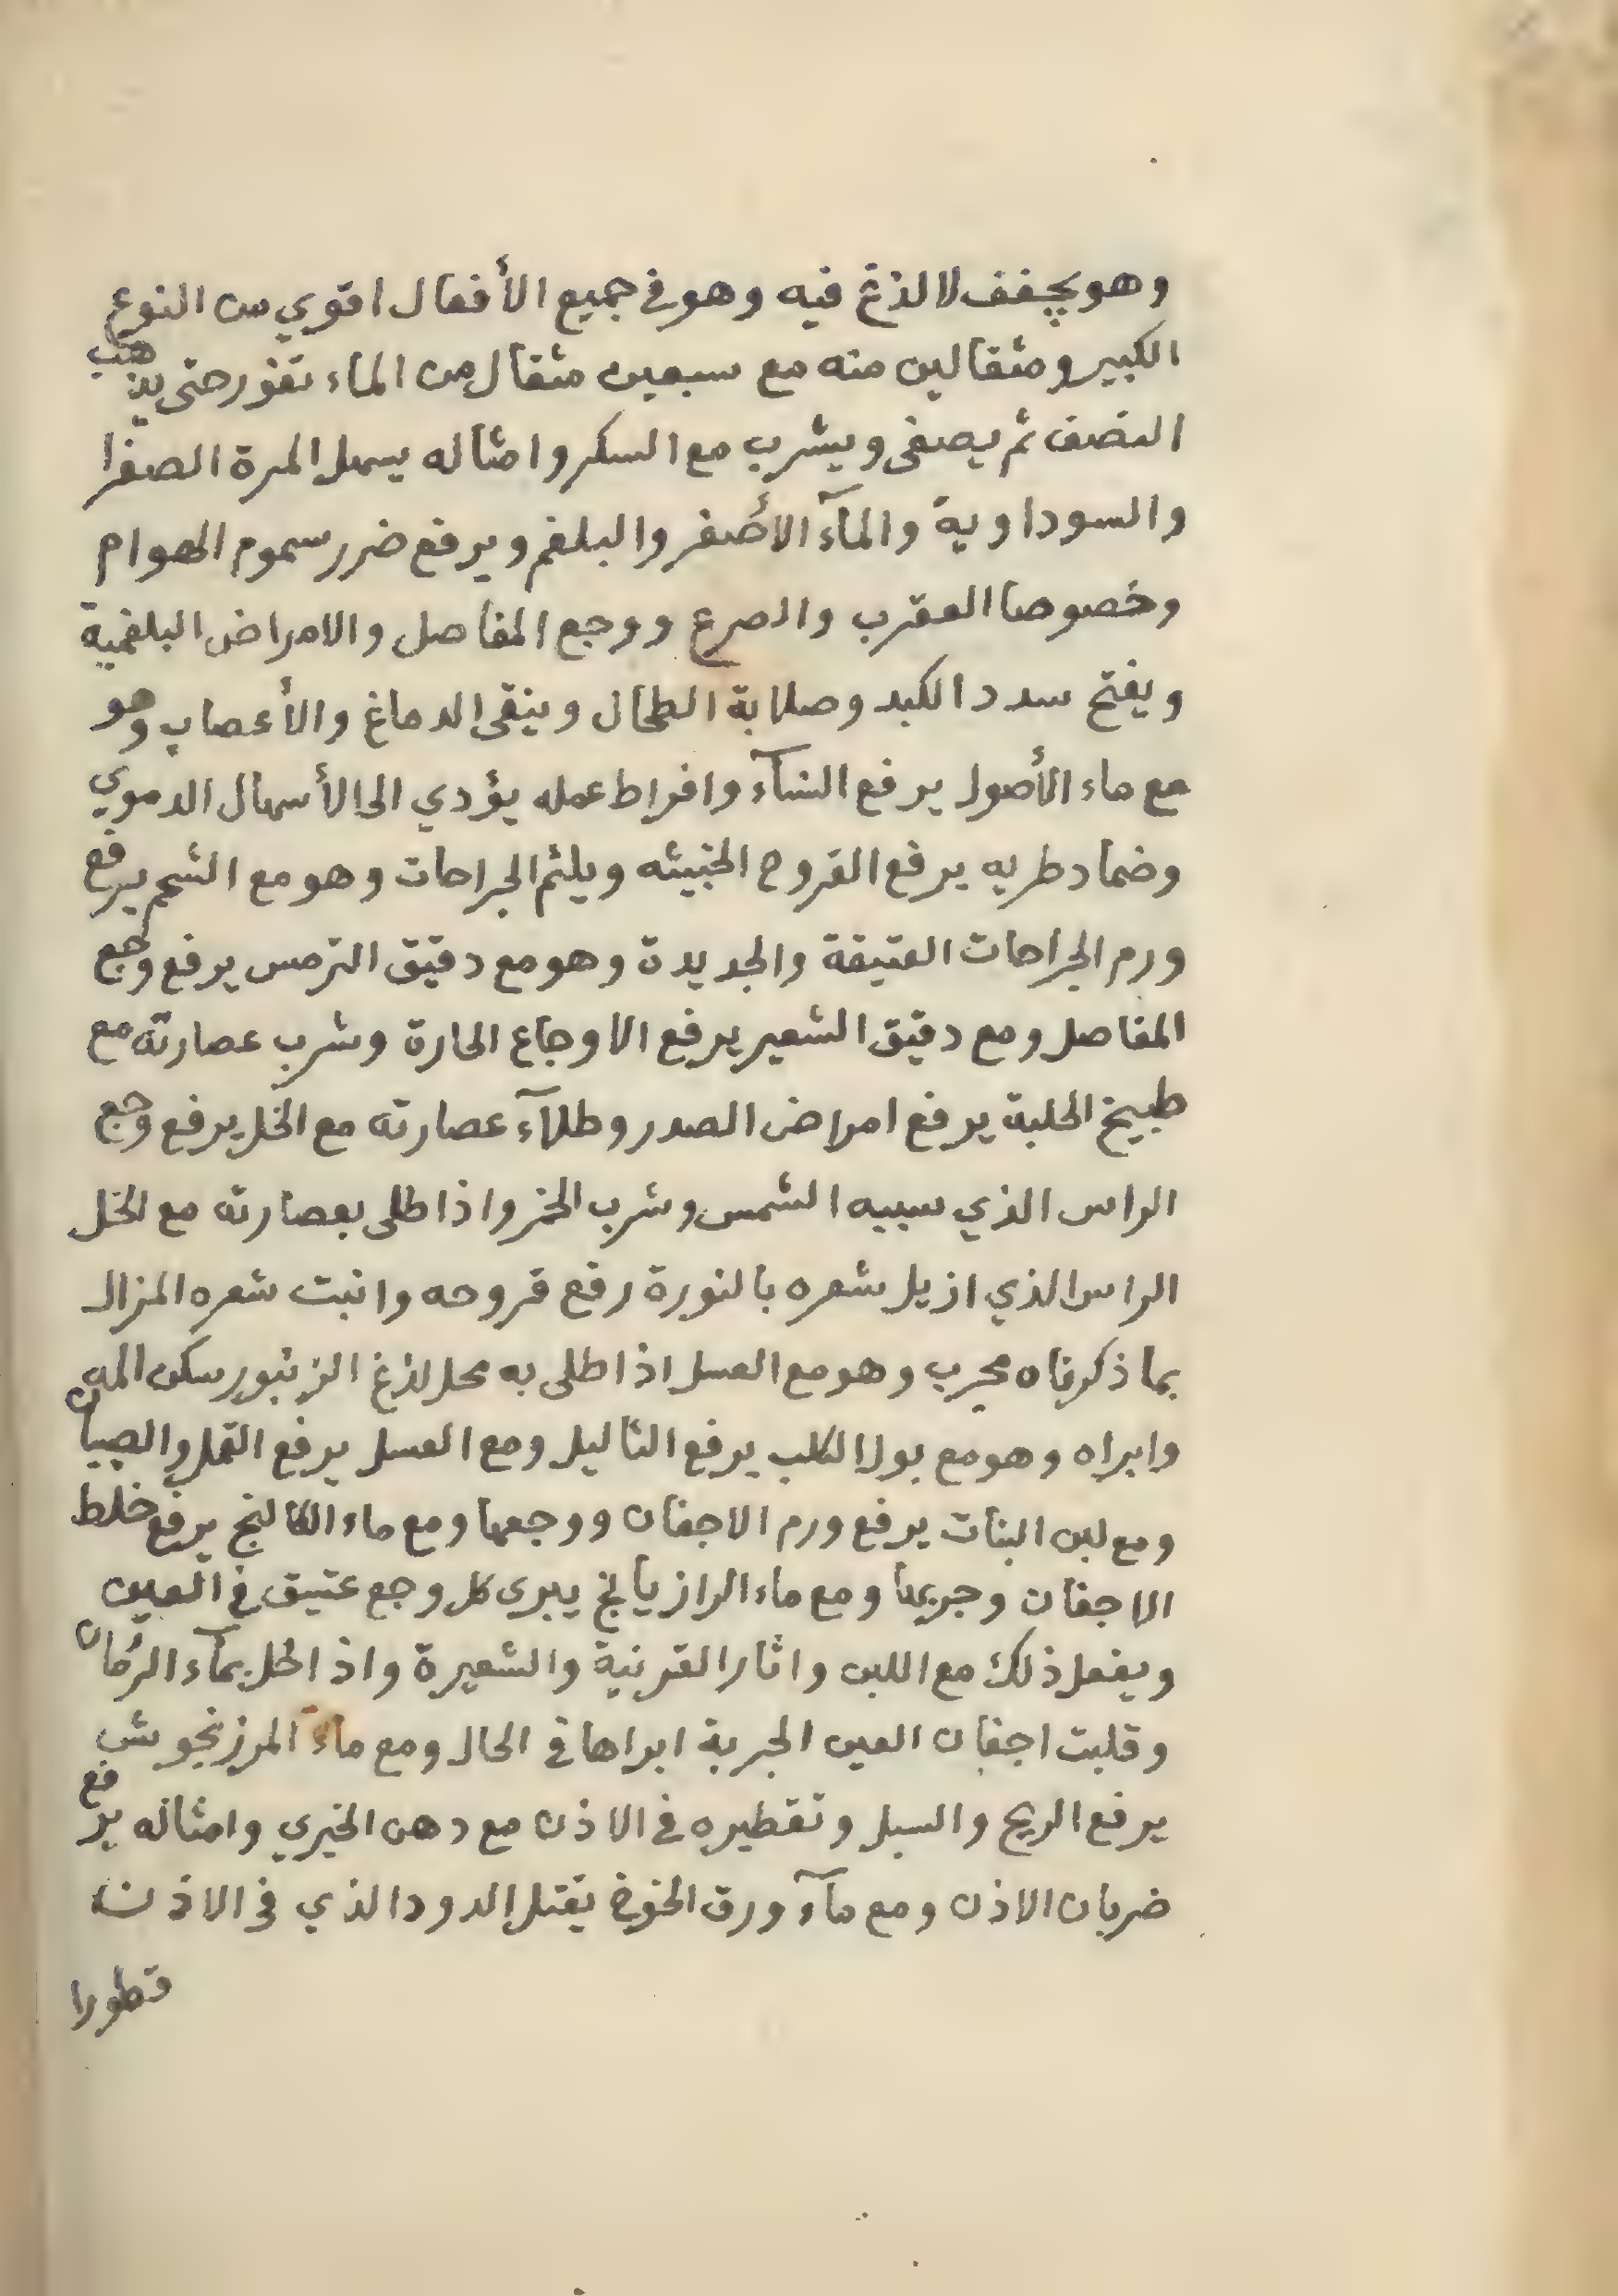 وهو يجفف لا لذغ فيه وهو في جميع الأفعال اقوي من النوع
الكبير ومثقالين منه مع سبعين مثقال من الماء تفور حتى يذهب
النصف ثم يصفى ويشرب مع السكر وامثاله يسهل المرة الصفرا
والسوداوية والمآء الأصفر والبلغم ويرفع ضرر سموم الهوام
وخصوصا العقرب والصرع ووجع المفاصل والامراض البلغمية
ويفتح سدد الكبد وصلابة الطحال وينقى الدماغ والأعصاب وهو
مع ماء الأصول يرفع النسآء وافراط عمله يؤدي الى الأسهال الدموي
وضماد طريه يرفع القروح الخبيثه ويلئم الجراحات وهو مع الشحم يرفع
ورم الجراحات العتيقة والجديدة وهو مع دقيق الترمس يرفع وجع
المفاصل ومع دقيق الشعير يرفع الاوجاع الحارة وشرب عصارته مع
طبيخ الحلبة يرفع امراض الصدر وطلآء عصارته مع الخل يرفع وجع
الراس الذي سببه الشمس وشرب الخمر واذا طلى بعصارته مع الخل
الراس الذي ازيل شعره بالنورة رفع قروحه وانبت شعره المزال
بما ذكرناه مجرب وهو مع العسل اذا طلى به محل لذغ الزنبور سكن المه
وابراه وهو مع بول الكلب يرفع الثاليل ومع العسل يرفع القمل والصيبان
ومع لبن البنات يرفع ورم الاجفان ووجعها ومع ماء الكالنج يرفع خلط
الاجفان وجربها ومع ماء الرازيانج يبرى كل وجع عتيق في العين
ويفعل ذلك مع اللبن واثار القرنية والشعيرة واذا كحل بمآء الرمان
وقلبت اجفان العين الجربة ابراها في الحال ومع مآء المرزنجوش
يرفع الريح والسبل وتقطيره في الاذن مع دهن الخيري وامثاله يرفع
ضربان الاذن ومع مآء ورق الخوخ يقتل الدود الذي في الاذن
قطورا